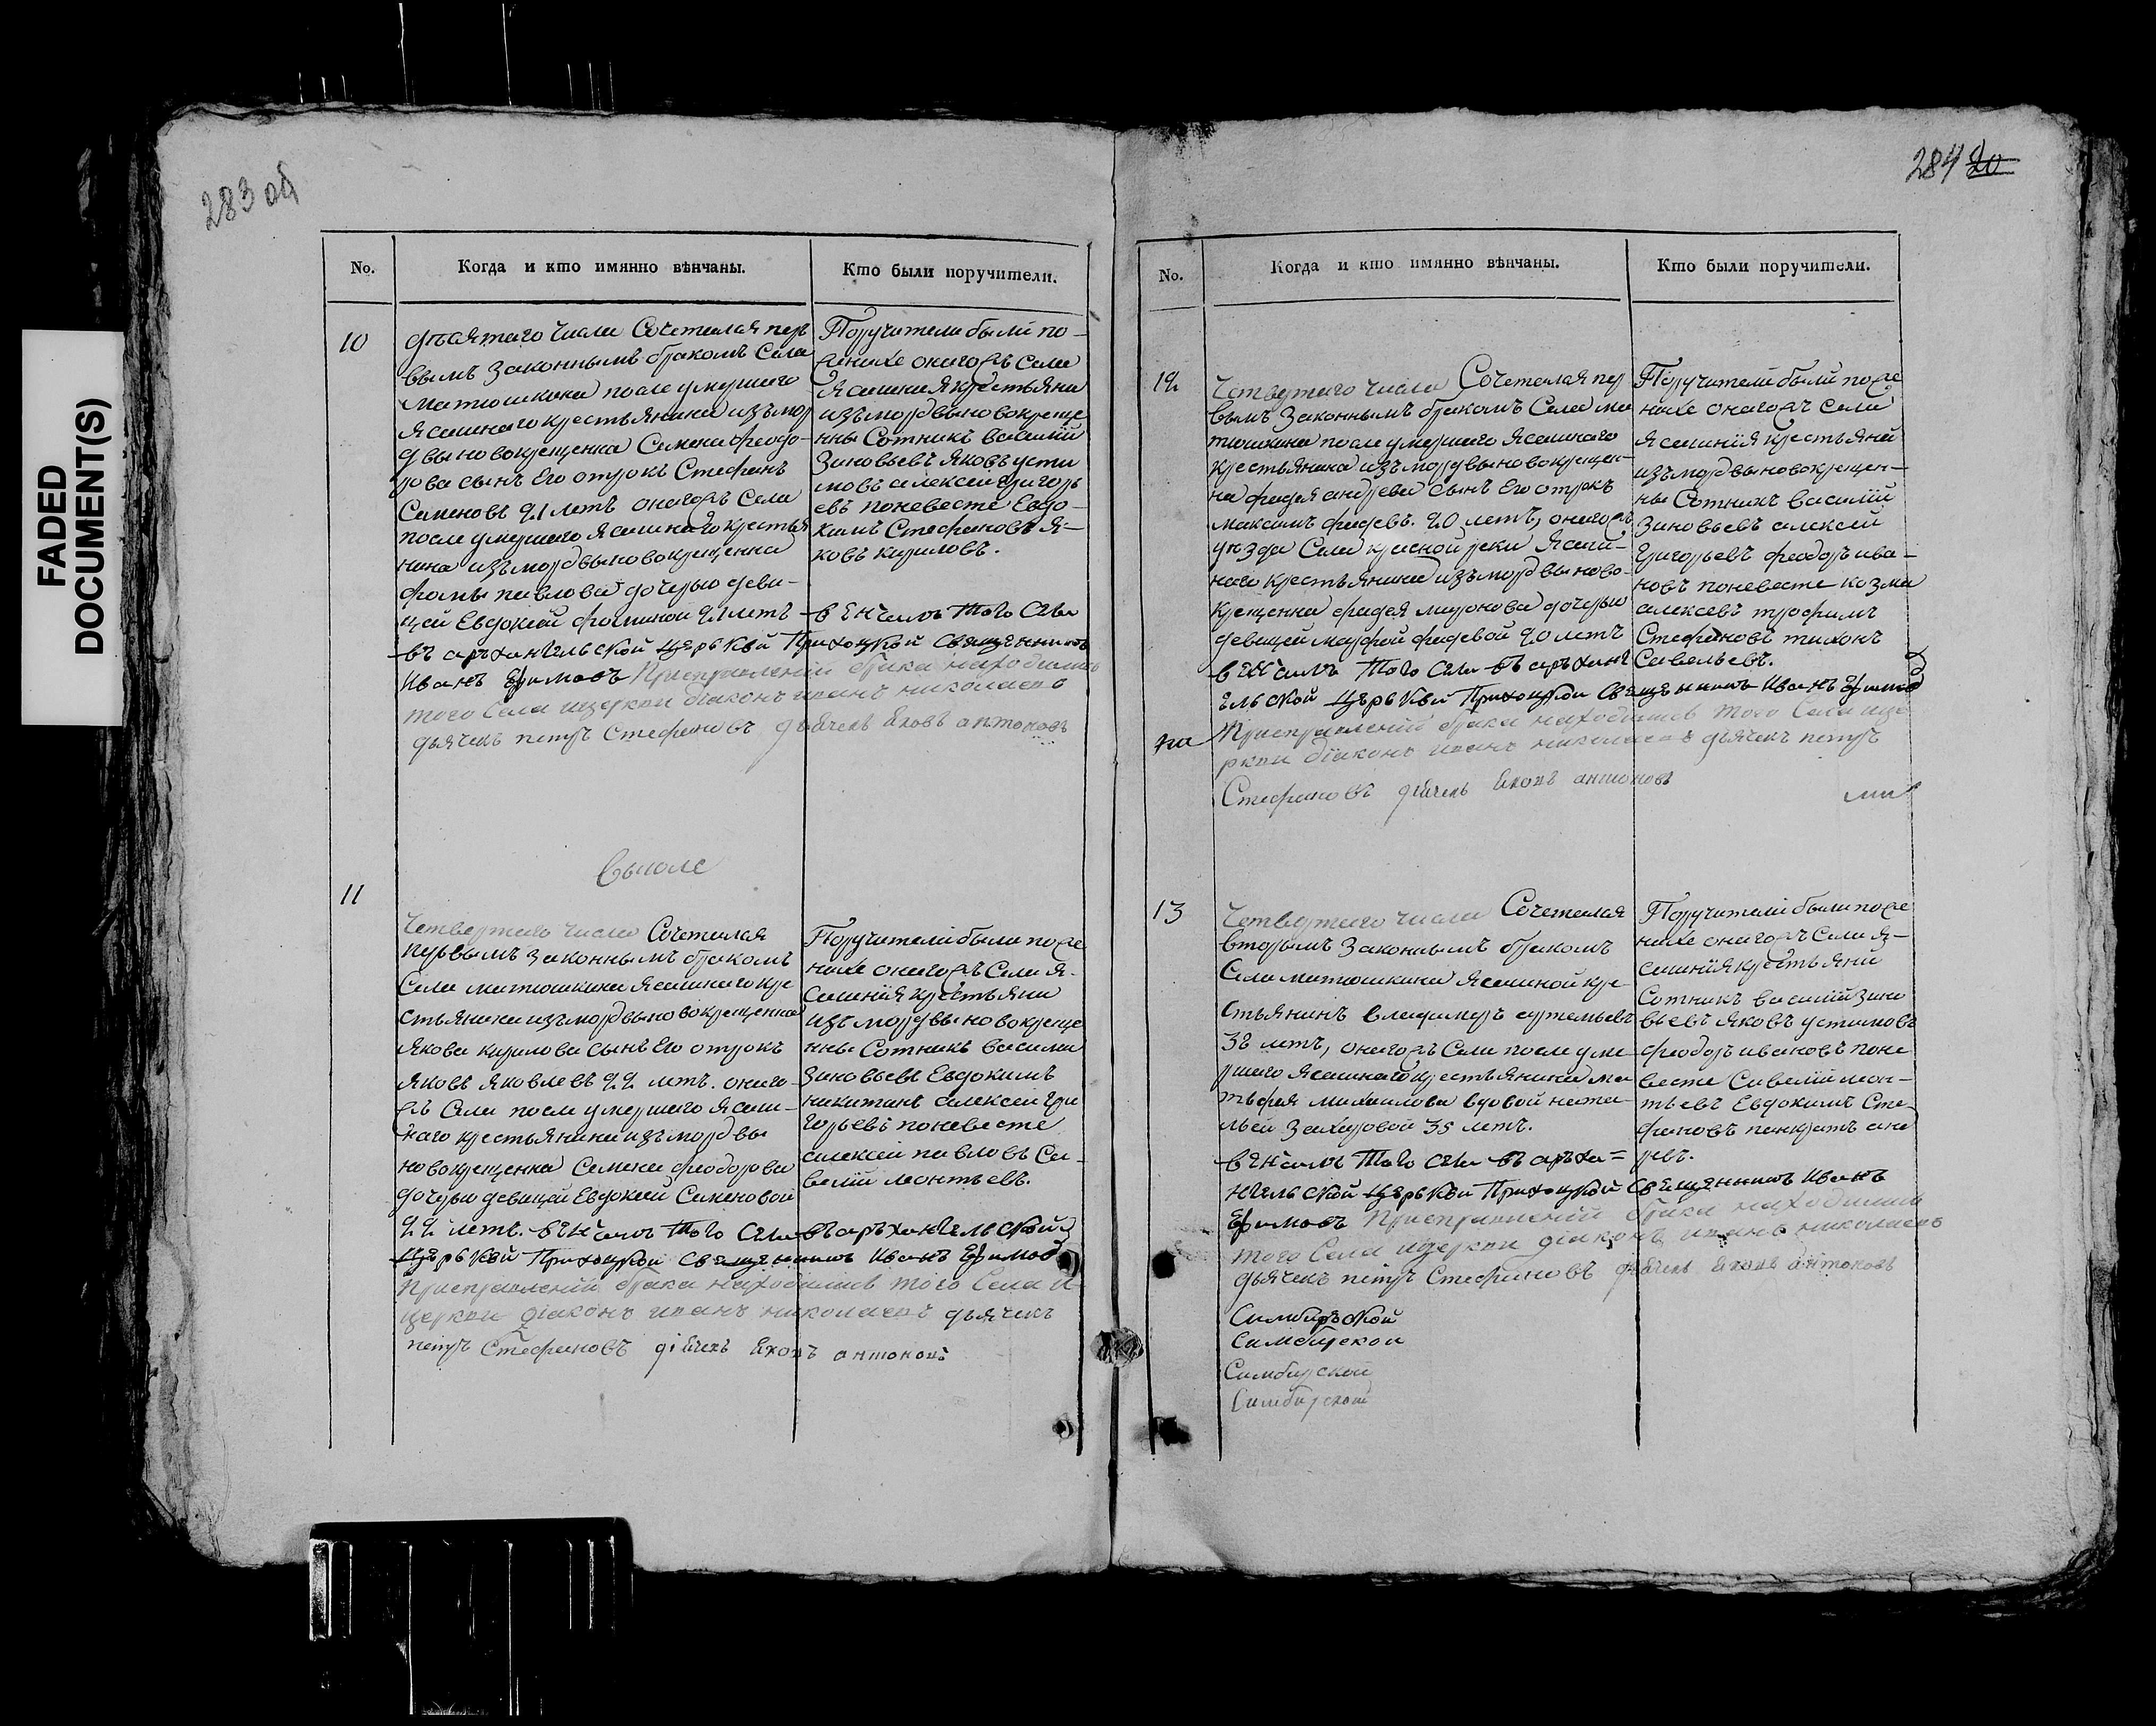 FADED
DOCUMENT(S)
283 об
No.
Когда и кто имянно вѣнчаны.
Кто были поручители.
10
девятаго числа Сочетался пер
ввымъ законнымъ бракомъ Села
матюшкина после умершаго
ясашнаго крестьянина изъ мор
двы новокрещенна Семена феодо-
рова сынъ Его отрокъ Стефанъ
Семеновъ 21 летъ онагожъ Села
после умершаго Ясашнаго крестья
нина изъ мордвы новокрещенна
фомы павлова дочерью деви-
цей Евдокіей фоминой 21 летъ
венчалъ того села
въ архангельской церькви Приходской священникъ
Иванъ Ефимовъ При справленіи брака находились
того Села и церкви діаконъ иванъ николаевъ
дьячекъ петръ Стефановъ дьячекъ яковъ антоновъ
Поручители были по
женихе онагожъ Села
Ясашния крестьяна
изъ мордвы новокреще
нны Сотникъ василій
Зиновьевъ яковъ усти
мовъ алексей григорь
евъ по невесте Евдо-
кимъ Стефановъ я-
ковъ кириловъ.
въ июле
11
Четвертаго числа Сочетался
первымъ законнымъ бракомъ
Села матюшкина ясашнаго кре
стьянина изъ мордвы новокрещенна
якова кирилова сынъ Его отрокъ
яковъ яковлевъ 22 летъ. онаго-
жъ Села после умершаго ясаш-
наго крестьянина изъ мордвы
новокрещенна Семена феодорова
дочерью девицей Евдокией Семеновой
22 летъ. венчалъ того села въ архангельской
церькви Приходской священникъ Иванъ Ефимовъ
При справленіи брака находились того Села и
церкви діаконъ иванъ николаевъ дьячекъ
петръ Стефановъ дьячекъ яковъ антоновъ
Поручители были по же
нихе онагожъ Села я-
сашния крестьяна
изъ мордвы новокреще
нны Сотникъ василий
Зиновьевъ Евдокимъ
никитинъ алексей гри
горьевъ по невесте
алексей павловъ Са-
велій леонтьевъ.
284 20
No.
Когда и кто имянно вѣнчаны.
Кто были поручители.
12
Четвертаго числа Сочетался пер
вымъ законнымъ бракомъ Села ма
тюшкина после умершаго ясашнаго
крестьянина изъ мордвы новокрещен-
на фадея андреева сынъ Его отрокъ
максимъ фадеевъ. 20 летъ, онагожъ
уезда Села красной реки Ясаш-
наго крестьянина изъ мордвы ново-
крещенна фадея миронова дочерью
девицей марфой фадеевой 20 летъ
венчалъ того села въ арханг
ельской церькви Приходской священникъ Иванъ Ефимовъ
При справленіи брака находились того Села и це
ркви діаконъ иванъ николаевъ дьячекъ петръ
Стефановъ дьячекъ яковъ антоновъ
Поручители были по же
нихе онагожъ Села
Ясашнія крестьяна
изъ мордвы новокрещен-
ны Сотникъ василій
Зиновьевъ алексей
Григорьевъ феодоръ ива-
новъ по невесте козма
алексеевъ трофимъ
Стефановъ тихонъ
Савельевъ.
13
Четвертаго числа Сочетался
вторымъ законнымъ бракомъ
Села матюшкина ясашной кре
стьянинъ владимеръ артемьевъ
38 летъ, онагожъ Села после уме
ршаго ясашнаго крестьянина ма
тьфея михаилова вдовой ната
льей Захаровой 35 летъ.
венчалъ того села въ арха=
нгельской церькви Приходской священникъ Иванъ
Ефимовъ При справленіи брака находились
того Села и церкви діаконъ иванъ николаевъ
дьячекъ петръ Стефановъ дьячекъ яковъ антоновъ
Поручители были по же
нихе онагожъ Села я-
сашнія крестьяна
Сотникъ василій зино
вьевъ яковъ устимовъ
феодоръ ивановъ по не
весте Савелій леон-
тьевъ Евдокимъ Сте
фановъ панкратъ анд
ревъ.
Симбирской
Симбирской
Симбирской
Симбирской